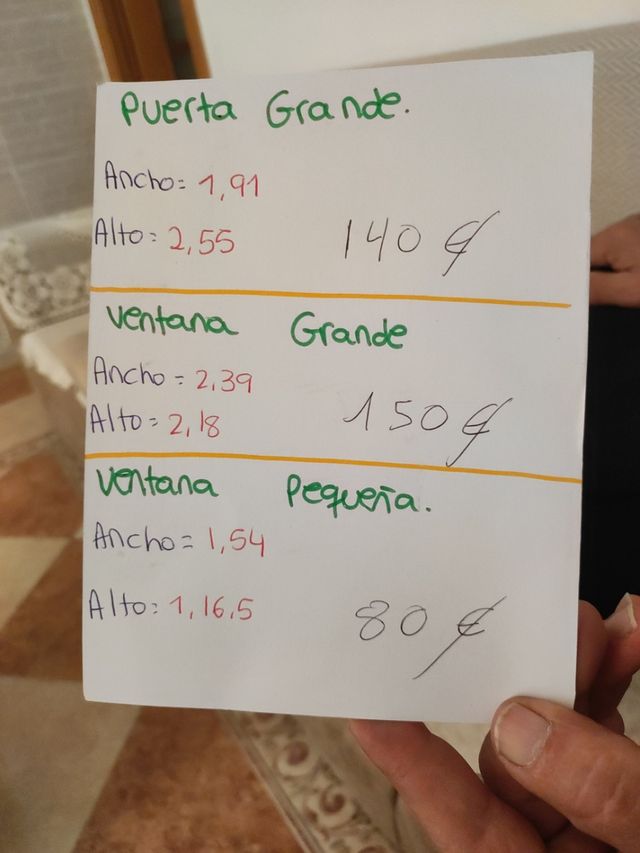 Puerta Grande.
Ancho = 1,91
Alto = 2,55
140 €
Ventana Grande
Ancho = 2,39
Alto = 2,18
150 €
Ventana Pequeña.
Ancho = 1,54
Alto = 1,16,5
80 €